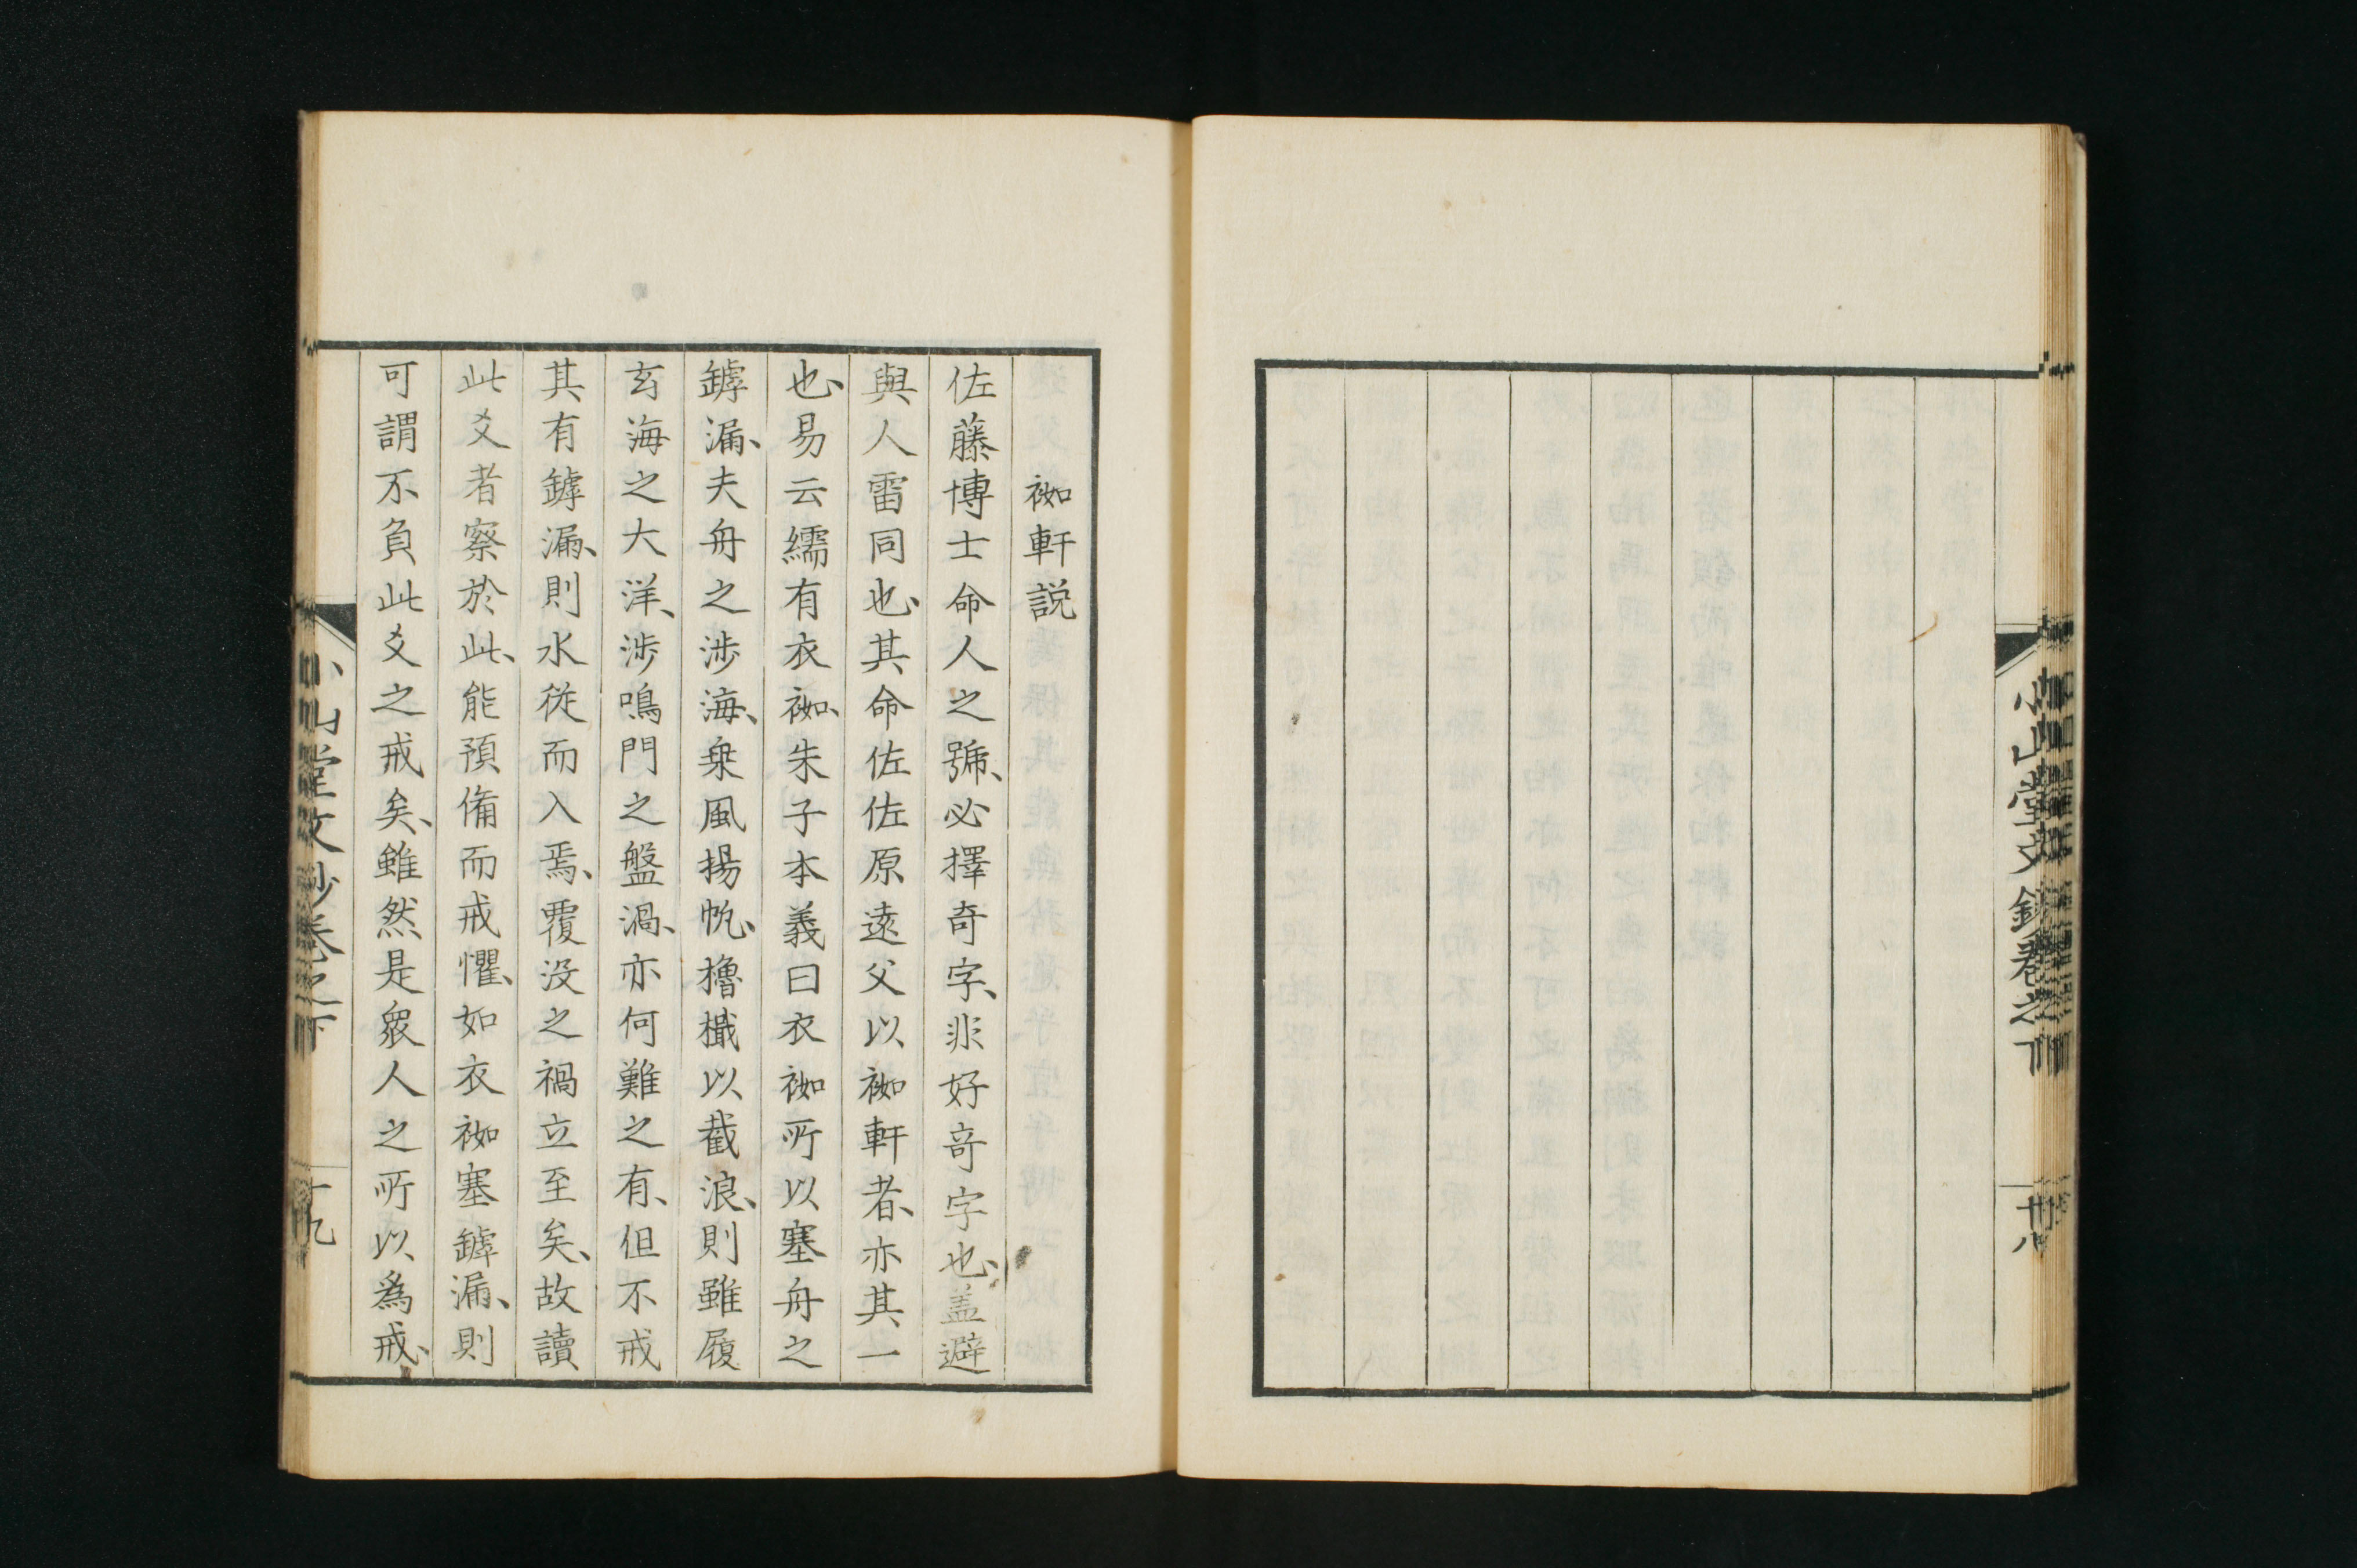 小山堂文鈔卷之下
卅八
袽軒説
佐藤博士命人之號、必擇奇字、非好奇字也、盖避
與人雷同也、其命佐佐原遠父以袽軒者、亦其一
也、易云繻有衣袽、朱子本義曰衣袽所以塞舟之
罅漏、夫舟之渉海、乗風揚帆、櫓檝以截浪、則雖履
玄海之大洋、渉鳴門之盤渦、亦何難之有、但不戒
其有罅漏、則水従而入焉、覆没之禍立至矣、故讀
此爻者察於此、能預備而戒懼、如衣袽塞罅漏、則
可謂不負此爻之戒矣、雖然是衆人之所以為戒、
小山堂文鈔卷之下
十九